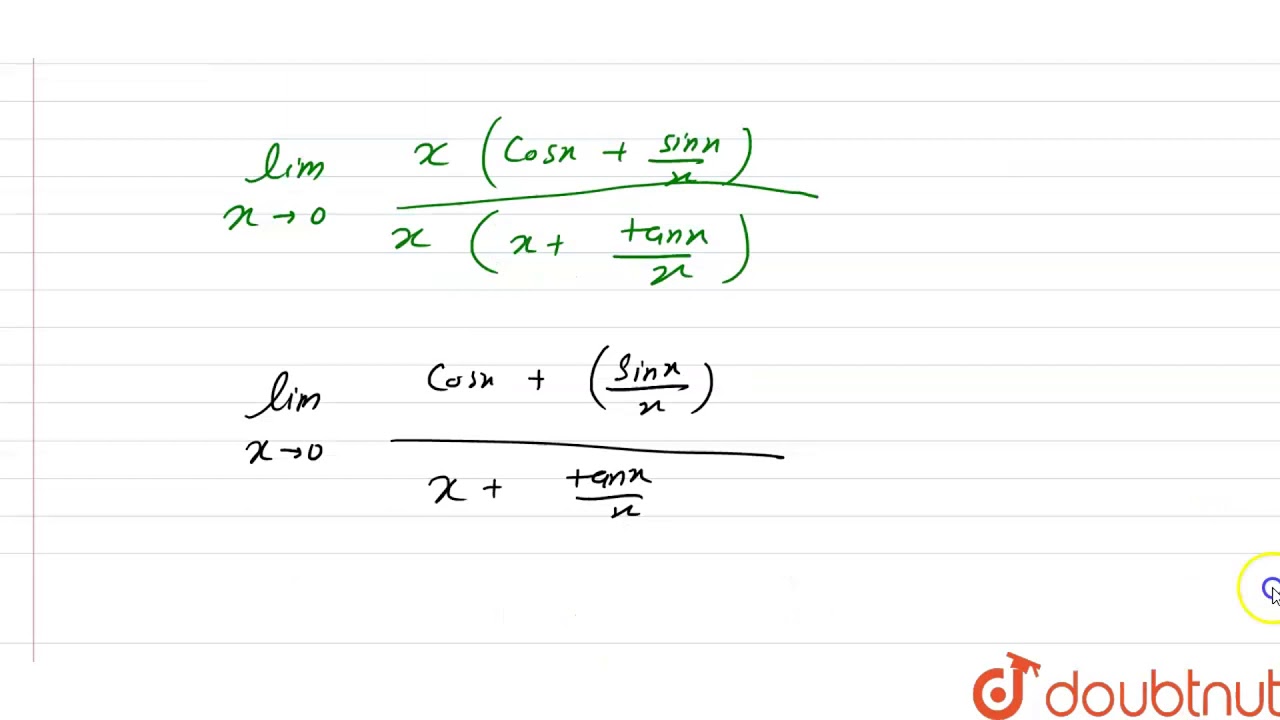 lim x→0 x (Cosx + sinx/x) / x (x + tanx/x)
lim x→0 Cosx + (sinx/x) / x + tanx/x
doubtnut